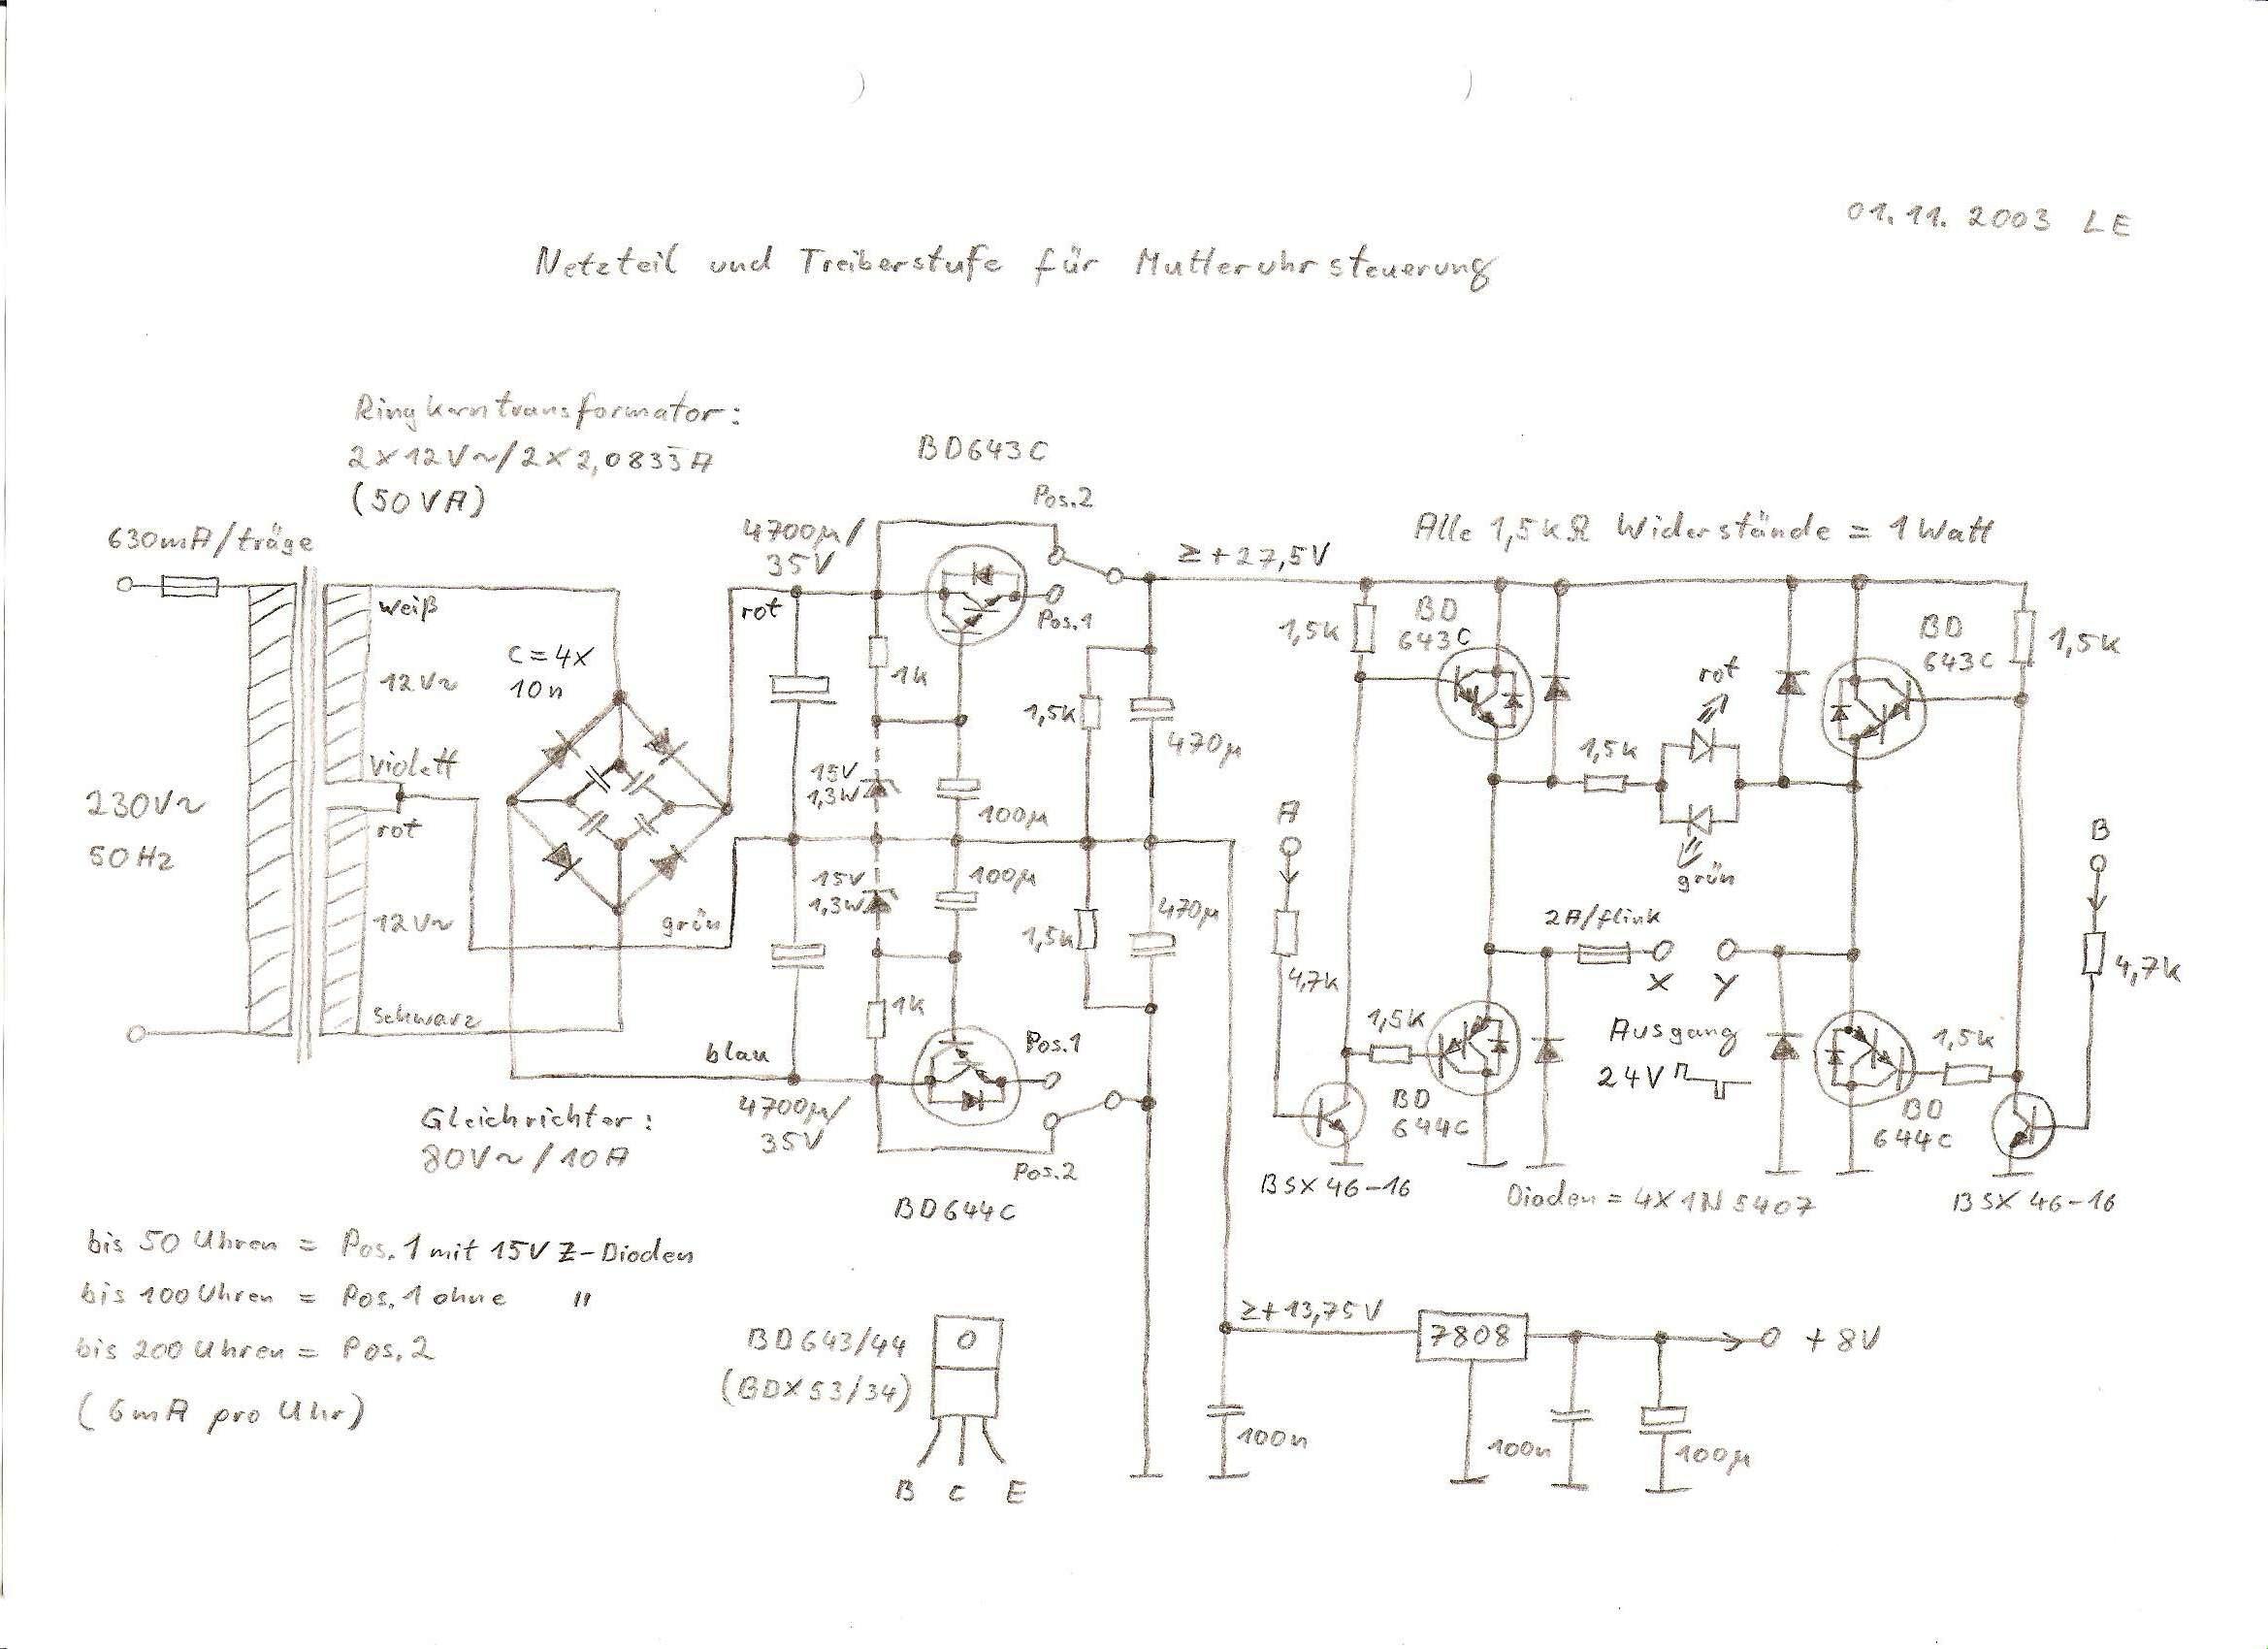 01.11.2003 LE
Netzteil und Treiberstufe für Mutteruhrsteuerung
Ringkerntransformator:
2x12V~/2x2,0833A
(50VA)
630mA/träge
230V~
50Hz
weiß
12V~
violett
rot
12V~
schwarz
C=4x
10n
rot
grün
blau
Gleichrichter:
80V~/10A
4700µ/
35V
4700µ/
35V
BD643C
Pos.2
Pos.1
1k
15V
1,3W
100µ
15V
1,3W
100µ
1k
Pos.1
Pos.2
BD644C
1,5k
470µ
1,5k
470µ
≥+27,5V
Alle 1,5kΩ Widerstände = 1Watt
1,5k
BD
643C
1,5k
rot
grün
BD
643C
1,5k
A
4,7k
B
4,7k
2A/flink
X
Y
Ausgang
24V
1,5k
BD
644C
1,5k
BD
644C
BSX 46-16
Dioden = 4x1N5407
BSX 46-16
bis 50 Uhren = Pos.1 mit 15V Z-Dioden
bis 100 Uhren = Pos.1 ohne "
bis 200 Uhren = Pos.2
(6mA pro Uhr)
BD643/44
(BDX53/34)
B C E
≥+13,75V
7808
+8V
100n
100n
100µ